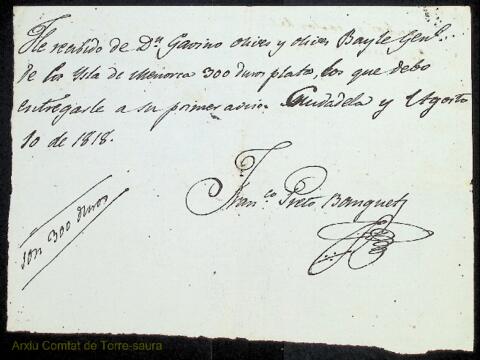 He recibido de Dn. Gavino Olives y Olives Bayle Genl.
de la Isla de Menorca 300 duros plata, los que debo
entregarle a su primer aviso. Ciudadela y Agosto
10 de 1818.
Franco. Prieto Banquet
son 300 duros
Arxiu Comtat de Torre-saura